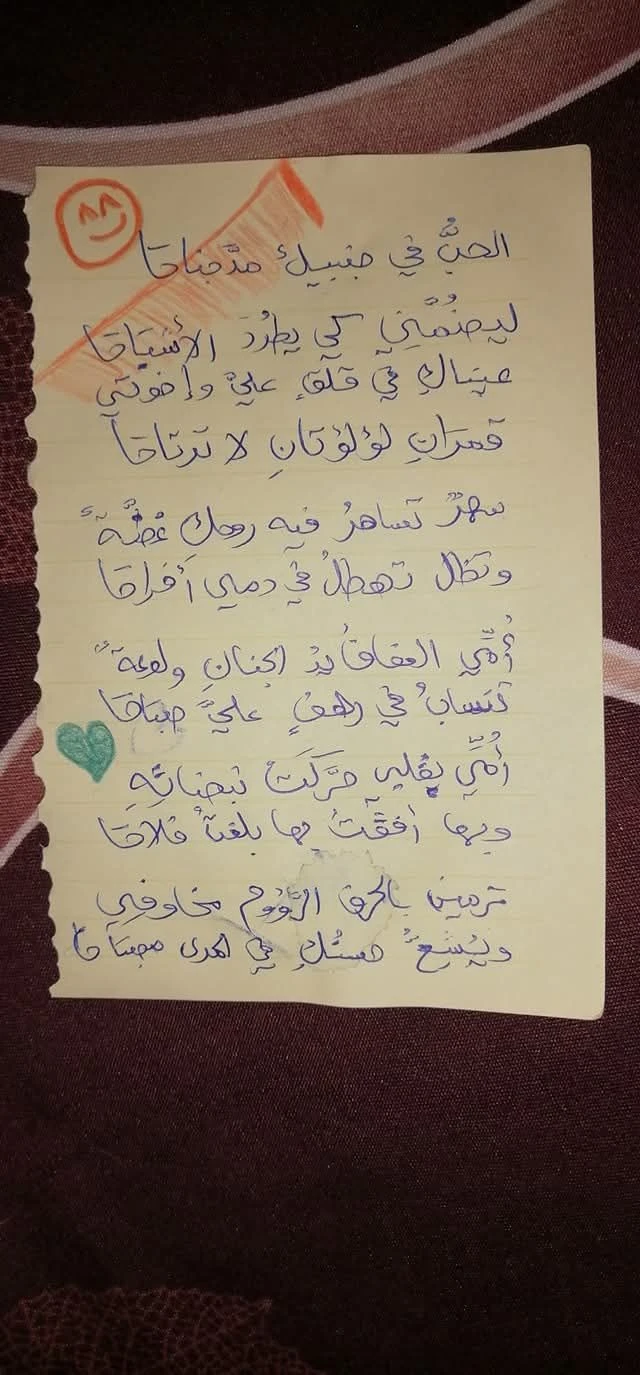 الحبُّ في جنبيكِ مدَّ جناحَا
ليضُمَّني كي يطرُدَ الأشباحَا
عيناكِ في قلقٍ عليَّ وإخوتي
قمرانِ لؤلؤتانِ لا ترتاحَا
سهرٌ تساهرُ فيه روحكِ غضَّةً
وتظل تهطلُ في دمي أفراحَا
أُمِّي الحنانِ ولوعةً
تنسابُ في لهفٍ عليَّ صباحَا
أُمِّي بقلبي حرَّكَتْ نبضاتِهِ
وبها أفقْتُ بها بلغتُ فلاحَا
ترمينَ بالحرف الرَّؤوم مخاوفي
ويُشِعُّ حسنُكِ في المدى مصباحَا